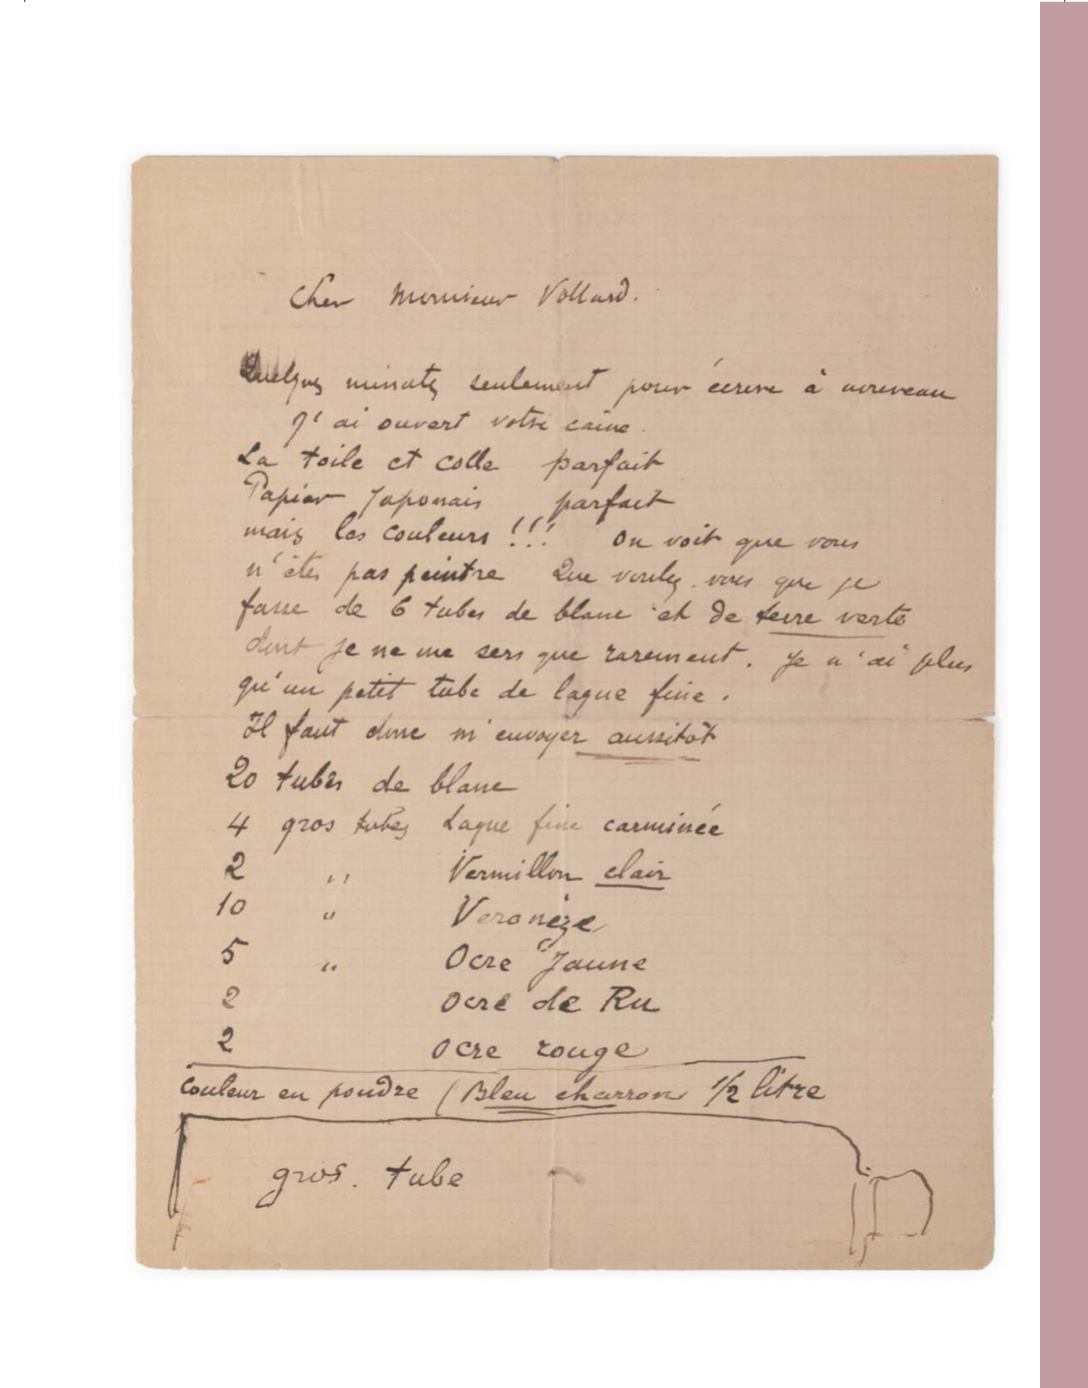 Cher Monsieur Vollard.
Quelques minutes seulement pour écrire à nouveau
J'ai ouvert votre caisse.
La toile et colle parfait
Papier Japonais parfait
mais les couleurs !!! On voit que vous
n'êtes pas peintre Que voulez vous que je
fasse de 6 tubes de blanc et de terre verte
dont je ne me sers que rarement. Je n'ai plus
qu'un petit tube de laque fine.
Il faut donc m'envoyer aussitôt
20 tubes de blanc
4 gros tubes Laque fine carminée
2 " Vermillon clair
10 " Veronèze
5 " Ocre Jaune
2 ocre de Ru
2 ocre rouge
Couleur en poudre ( Bleu charron 1/2 litre
gros. tube